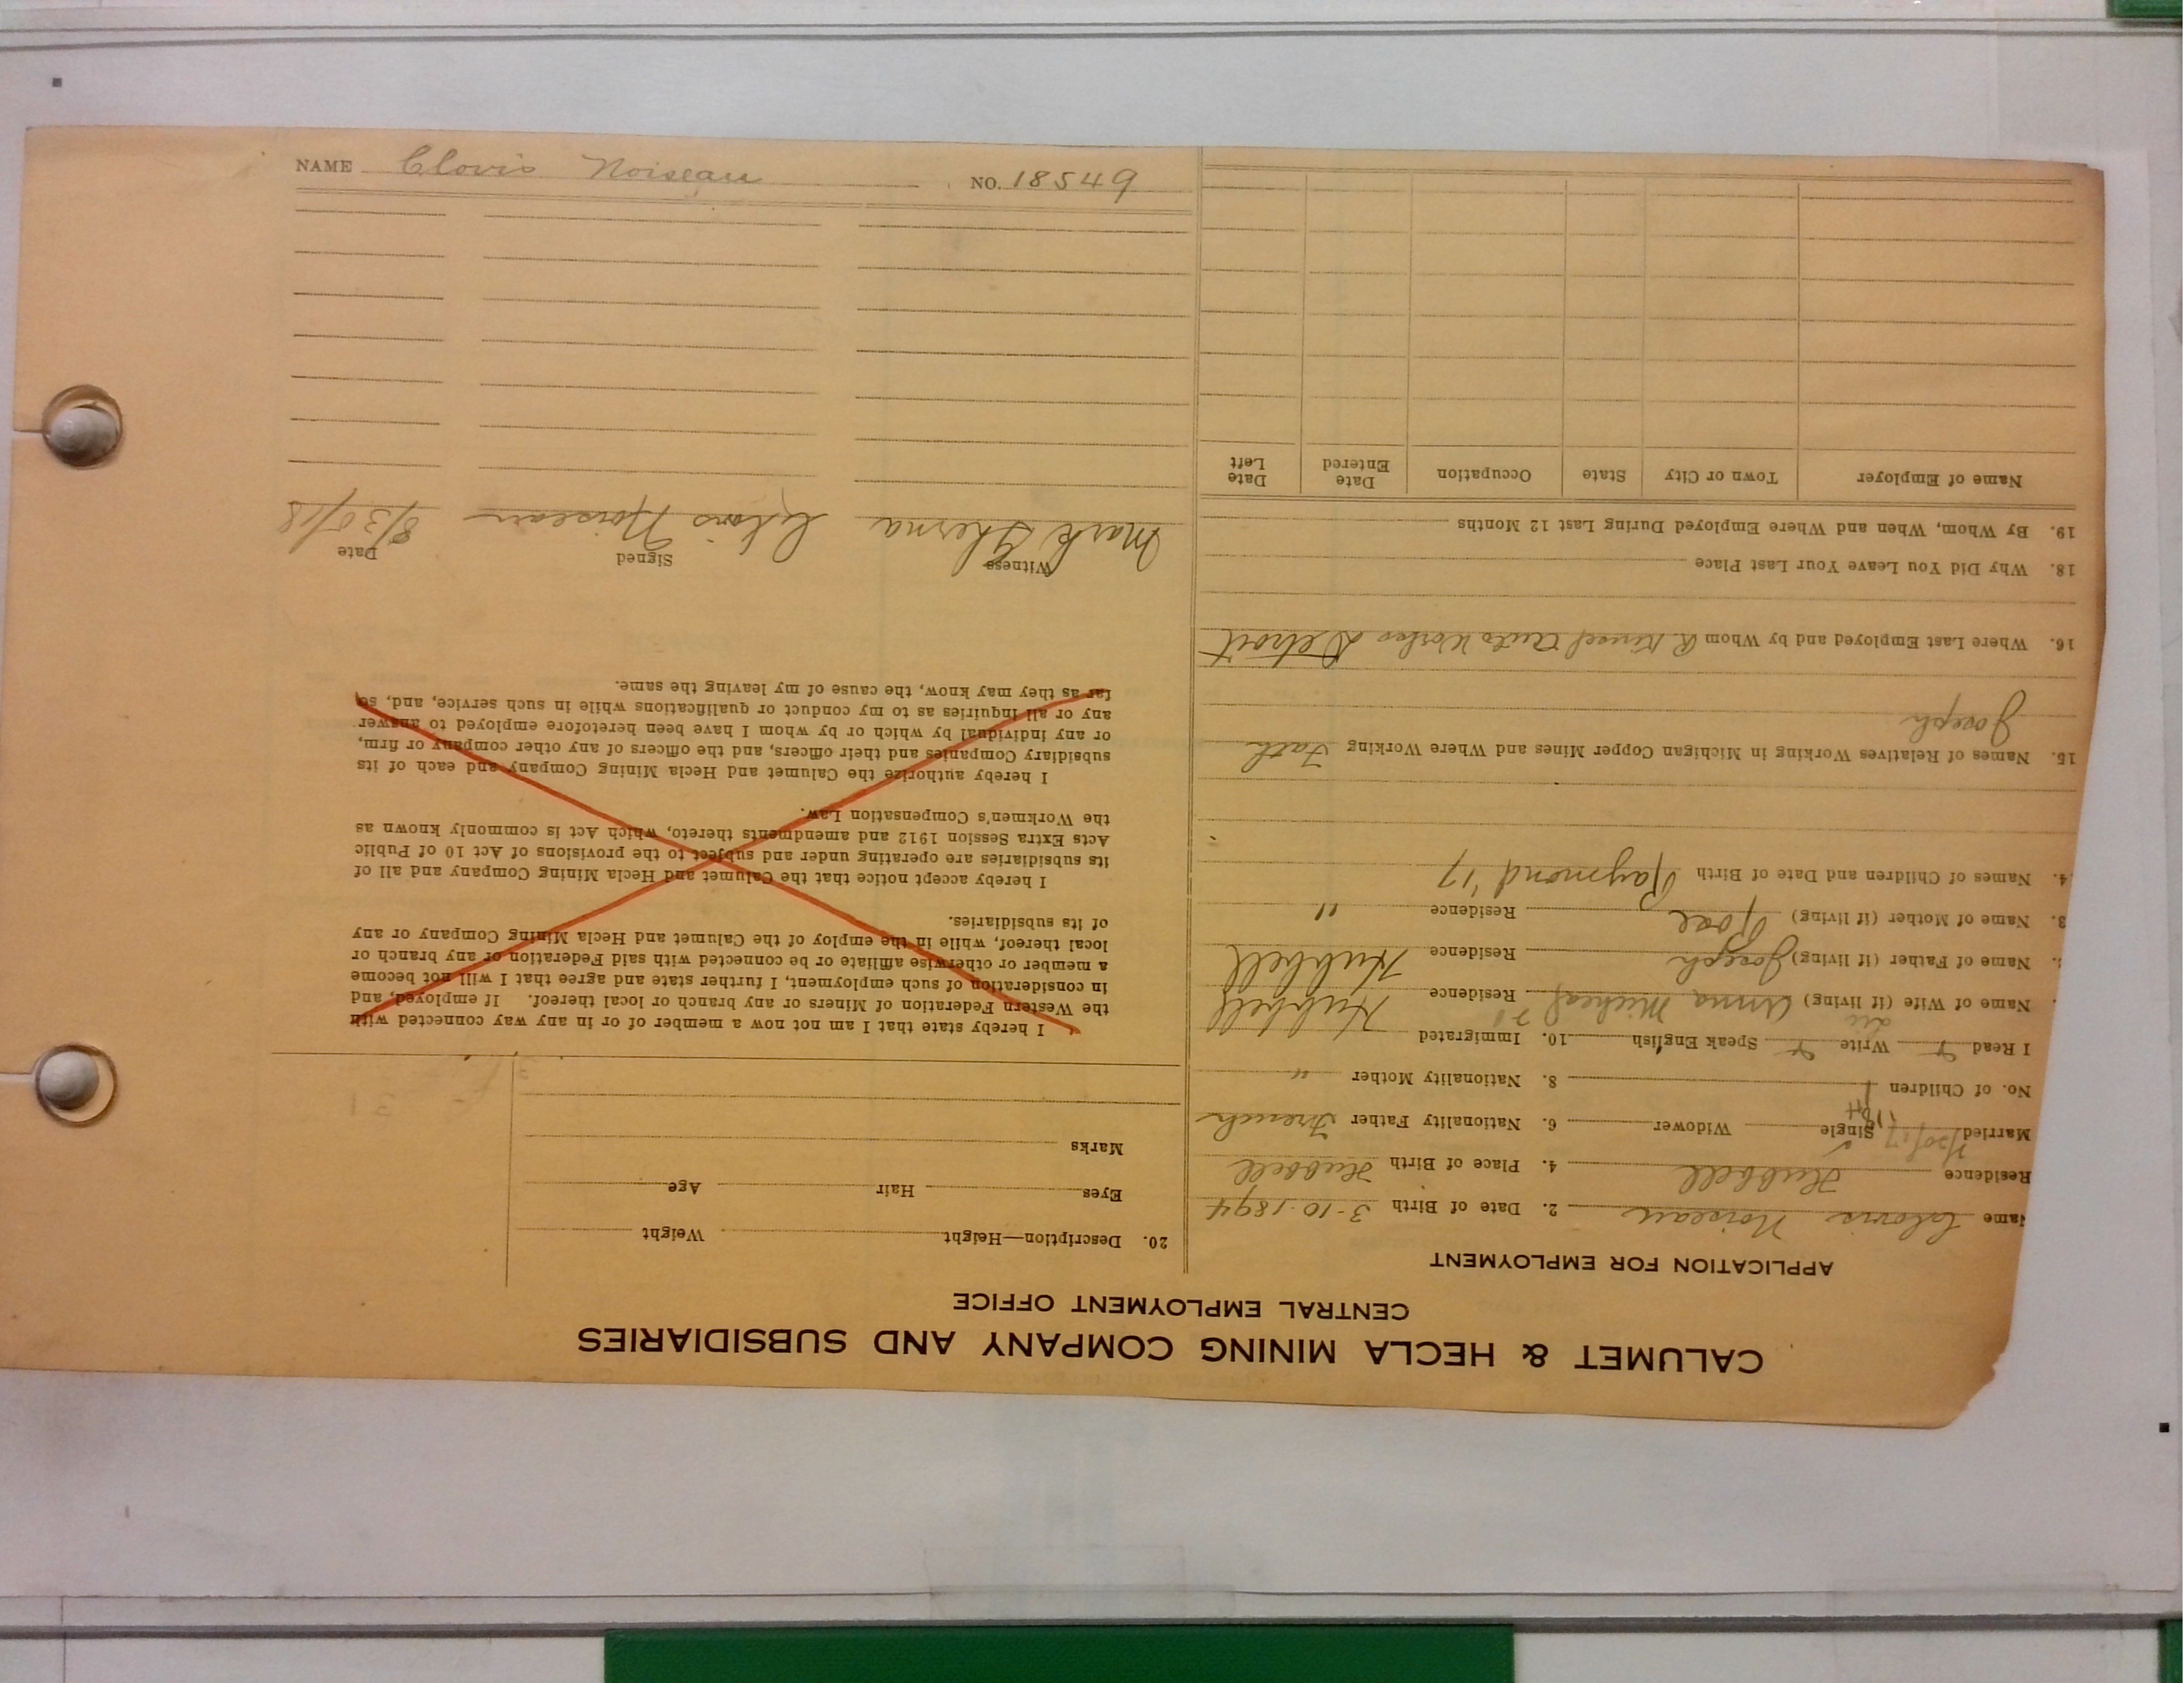 CALUMET & HECLA MINING COMPANY AND SUBSIDIARIES
CENTRAL EMPLOYMENT OFFICE
APPLICATION FOR EMPLOYMENT
Name Clovis Noiseau 2. Date of Birth 3-10-1894
Residence Hubbell 4. Place of Birth Hubbell
Married Single Widower 6. Nationality Father French
No. of Children 1 8. Nationality Mother "
I Read Write Speak English 10. Immigrated
Name of Wife (if living) Anna Residence Hubbell
Name of Father (if living) Joseph Residence Hubbell
3. Name of Mother (if living) Rose Residence "
4. Names of Children and Date of Birth Raymond '17
15. Names of Relatives Working in Michigan Copper Mines and Where Working Fath
Joseph
16. Where Last Employed and by Whom Auto Works Detroit
18. Why Did You Leave Your Last Place
19. By Whom, When and Where Employed During Last 12 Months
Name of Employer Town or City State Occupation Date Entered Date Left
20. Description—Height Weight
Eyes Hair Age
Marks
I hereby state that I am not now a member of or in any way connected with
the Western Federation of Miners or any branch or local thereof. If employed, and
in consideration of such employment, I further state and agree that I will not become
a member or otherwise affiliate or be connected with said Federation or any branch or
local thereof, while in the employ of the Calumet and Hecla Mining Company or any
of its subsidiaries.
I hereby accept notice that the Calumet and Hecla Mining Company and all of
its subsidiaries are operating under and subject to the provisions of Act 10 of Public
Acts Extra Session 1912 and amendments thereto, which Act is commonly known as
the Workmen's Compensation Law.
I hereby authorize the Calumet and Hecla Mining Company and each of its
subsidiary Companies and their officers, and the officers of any other company or firm,
or any individual by which or by whom I have been heretofore employed to answer
any or all inquiries as to my conduct or qualifications while in such service, and, so
far as they may know, the cause of my leaving the same.
Witness Signed Date
Mark Clovis Noiseau 8/30/18
NAME Clovis Noiseau NO. 18549